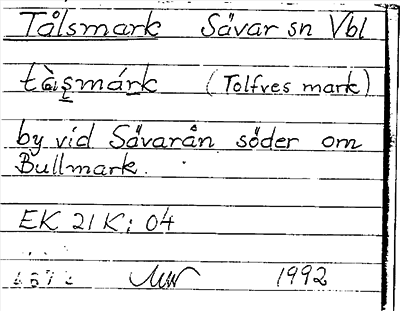 Tålsmark Sävar sn Vbl
(Tolfves mark)
by vid Sävarån söder om
Bullmark.
EK 21K: 04
1992